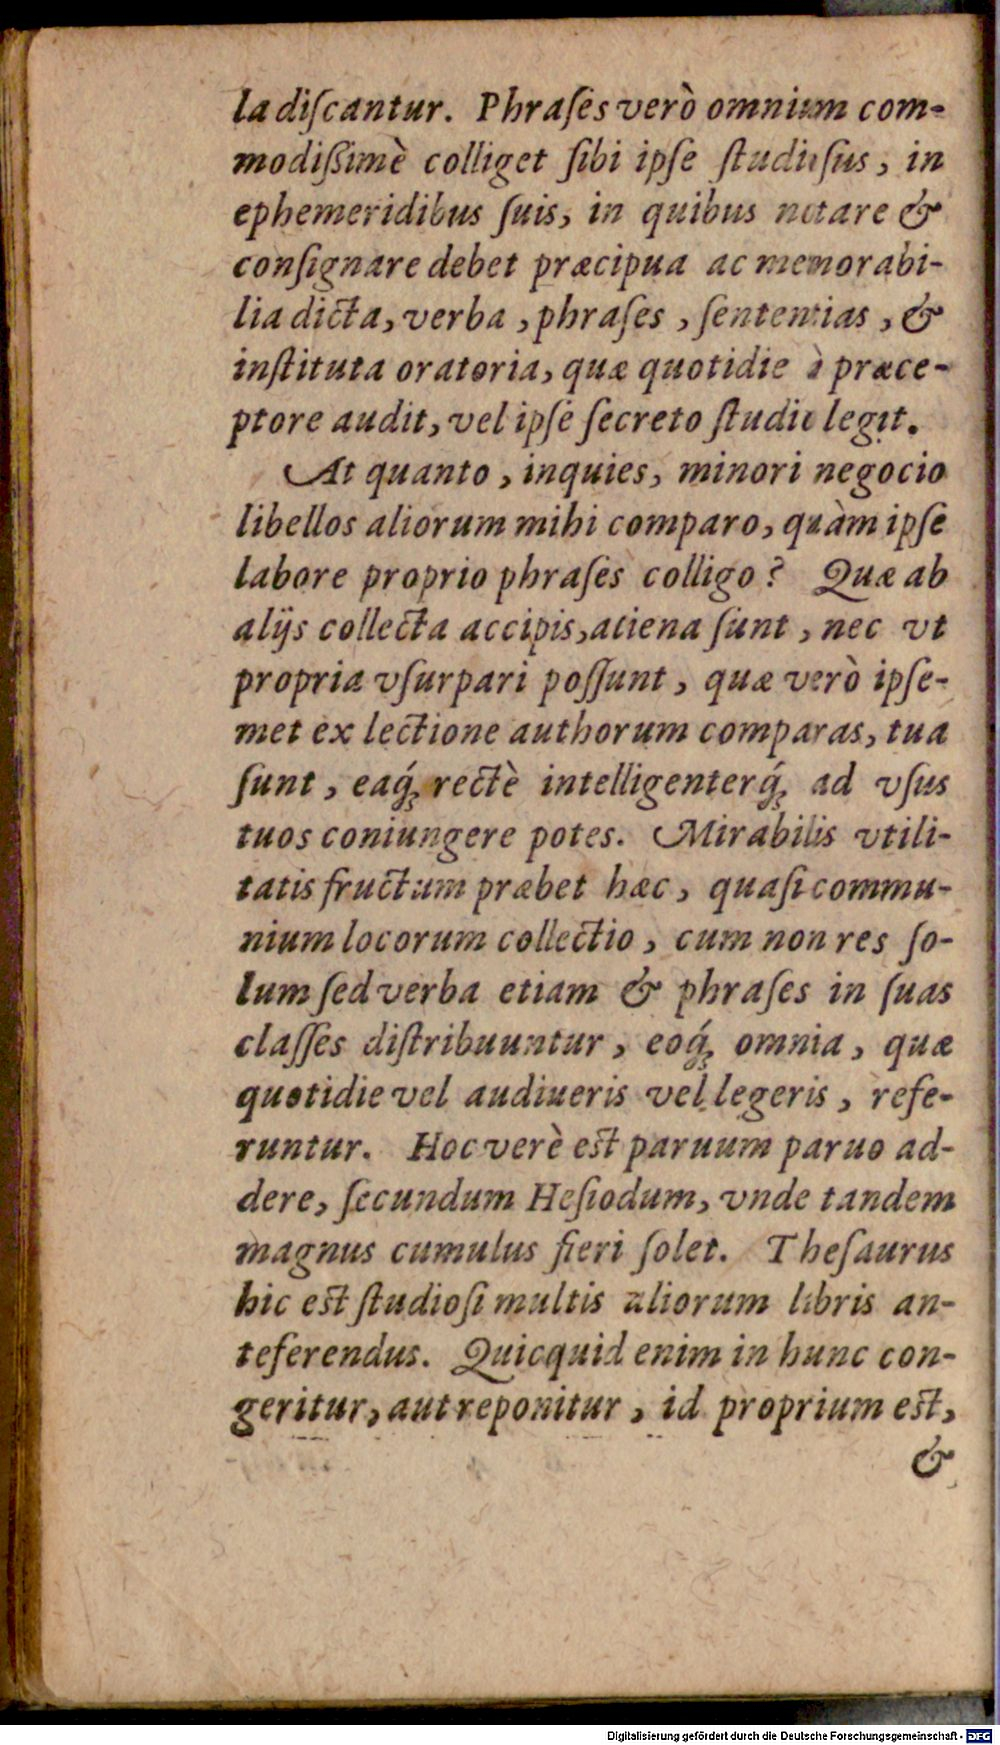 la diſcantur. Phraſes verò omnium com-
modiſſimè colliget ſibi ipſe ſtudioſus, in
ephemeridibus ſuis, in quibus notare &
conſignare debet præcipua ac memorabi-
lia dicta, verba, phraſes, ſententias, &
inſtituta oratoria, quæ quotidie à præce-
ptore audit, vel ipſe ſecreto ſtudio legit.
At quanto, inquies, minori negocio
libellos aliorum mihi comparo, quàm ipſe
labore proprio phraſes colligo? Quæ ab
alijs collecta accipis, aliena ſunt, nec vt
propria vſurpari poſſunt, quæ verò ipſe-
met ex lectione authorum comparas, tua
ſunt, eaq́ꝫ rectè intelligenterq́ꝫ ad vſus
tuos coniungere potes. Mirabilis vtili-
tatis fructum præbet hæc, quaſi commu-
nium locorum collectio, cum non res ſo-
lum ſed verba etiam & phraſes in ſuas
claſſes diſtribuuntur, eoq́ꝫ omnia, quæ
quotidie vel audiueris vel legeris, refe-
runtur. Hoc verè eſt paruum paruo ad-
dere, ſecundum Heſiodum, vnde tandem
magnus cumulus fieri ſolet. Theſaurus
hic eſt ſtudioſi multis aliorum libris an-
teferendus. Quicquid enim in hunc con-
geritur, aut reponitur, id proprium eſt,
&
Digitalisierung gefördert durch die Deutsche Forschungsgemeinschaft - DFG